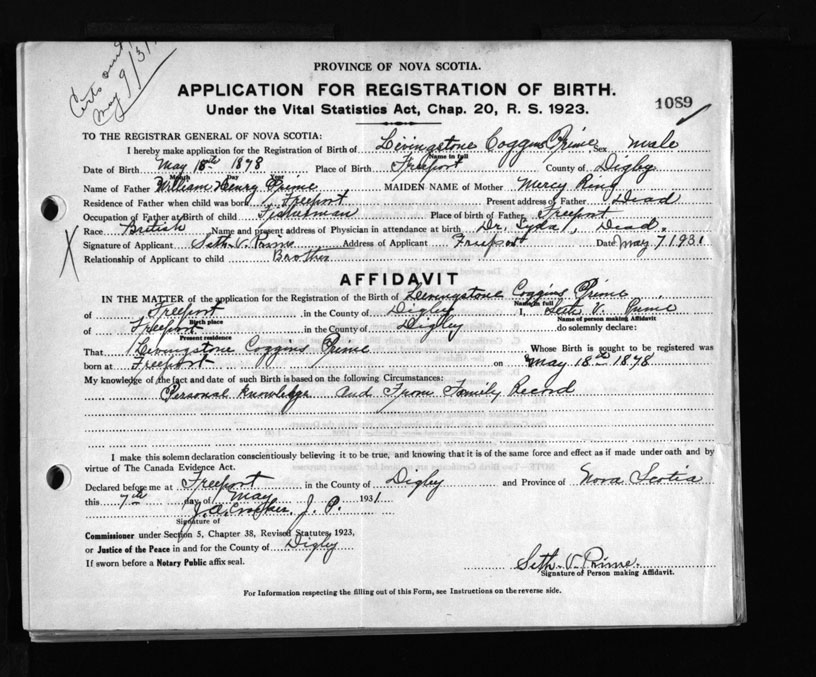 Certs sent
May 9/31
PROVINCE OF NOVA SCOTIA.
APPLICATION FOR REGISTRATION OF BIRTH.
1089
Under the Vital Statistics Act, Chap. 20, R. S. 1923.
TO THE REGISTRAR GENERAL OF NOVA SCOTIA:
I hereby make application for the Registration of Birth of Livingstone Coggins Prime Sex male
Name in full
Date of Birth May 18th 1878 Place of Birth Freeport County of Digby
Month Day Year
Name of Father William Henry Prime MAIDEN NAME of Mother Mercy Ring
Residence of Father when child was born Freeport Present address of Father Dead
Occupation of Father at Birth of child Fisherman Place of birth of Father Freeport
Race British Name and present address of Physician in attendance at birth Dr. Lyda, Dead.
Signature of Applicant Seth V. Prime Address of Applicant Freeport Date May 7 1931
Relationship of Applicant to child Brother
AFFIDAVIT
IN THE MATTER of the application for the Registration of the Birth of Livingstone Coggins Prime
Name in full
of Freeport in the County of Digby I, Seth V. Prime
Birth place Name of person making Affidavit
of Freeport in the County of Digby do solemnly declare:
Present residence
That Livingstone Coggins Prime Whose Birth is sought to be registered was
born at Freeport on May 18th 1878
My knowledge of the fact and date of such Birth is based on the following Circumstances:
Personal knowledge and From Family Record
I make this solemn declaration conscientiously believing it to be true, and knowing that it is of the same force and effect as if made under oath and by
virtue of The Canada Evidence Act.
Declared before me at Freeport in the County of Digby and Province of Nova Scotia
this 7th day of May 1931
J. P.
Signature of
Commissioner under Section 5, Chapter 38, Revised Statutes, 1923,
or Justice of the Peace in and for the County of Digby
If sworn before a Notary Public affix seal.
Seth V. Prime.
Signature of Person making Affidavit.
For Information respecting the filling out of this Form, see Instructions on the reverse side.